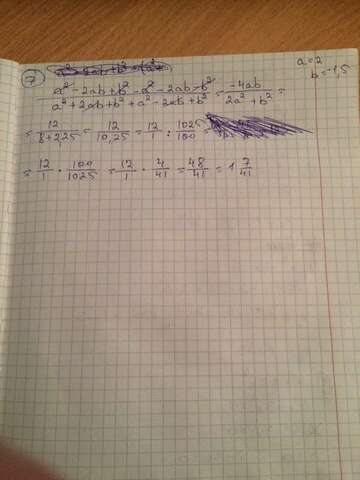 7
a=2
b=-1,5
a²-2ab+b²-a²-2ab-b² / a²+2ab+b²+a²-2ab+b² = -4ab / 2a²+b² =
= 12 / 8+2,25 = 12 / 10,25 = 12/1 : 1025/100 =
= 12/1 · 100/1025 = 12/1 · 4/41 = 48/41 = 1 7/41